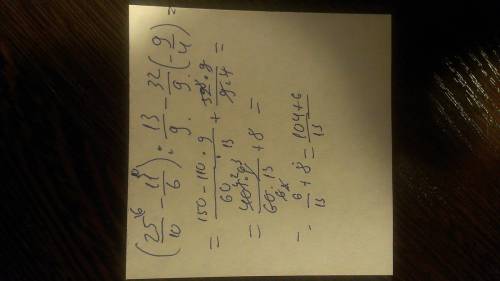 (25/10 - 11/6) : 13/9 - 32/9 (-9/4) =
= 150 - 110 · 9 / 60 · 13 + 32 · 9 / 9 · 4 =
= 40 · 9 / 60 · 13 + 8 =
= 6/13 + 8 = 104+6 / 13